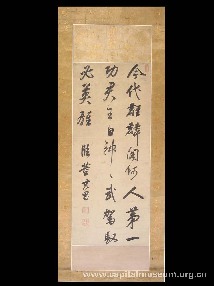 今代麒麟閣何人第一
功君王自神武駕馭
必英雄 臨董其昌
www.capitalmuseum.org.cn